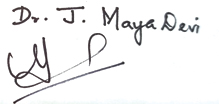 Dr. J. Maya Devi